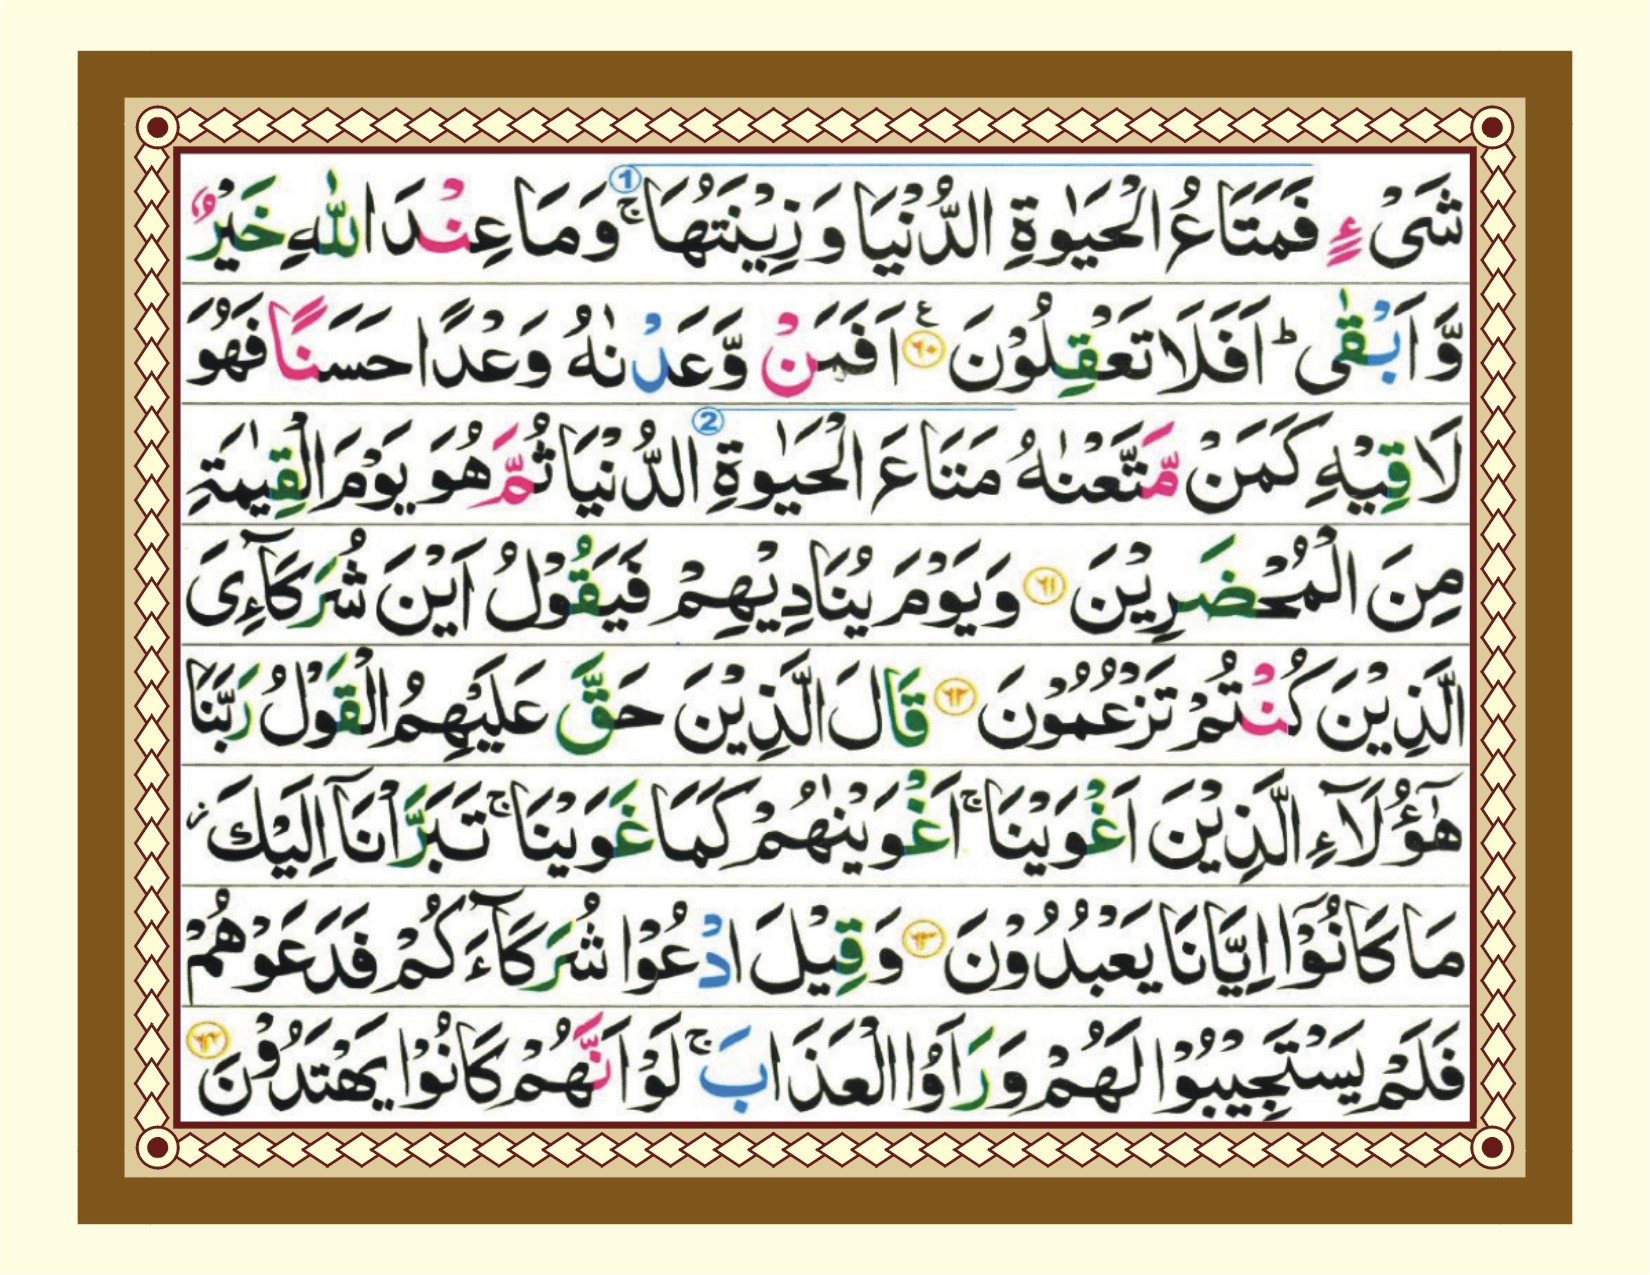 شَیْءٍ فَمَتَاعُ الْحَیٰوةِ الدُّنْیَا وَ زِیْنَتُهَا ①ۚ وَ مَا عِنْدَ اللّٰهِ خَیْرٌ
وَّ اَبْقٰی ؕ اَفَلَا تَعْقِلُوْنَ ﴿٦٠﴾ ع اَفَمَنْ وَّعَدْنٰهُ وَعْدًا حَسَنًا فَهُوَ
لَاقِیْهِ كَمَنْ مَّتَّعْنٰهُ مَتَاعَ الْحَیٰوةِ ② الدُّنْیَا ثُمَّ هُوَ یَوْمَ الْقِیٰمَةِ
مِنَ الْمُحْضَرِیْنَ ﴿٦١﴾ وَ یَوْمَ یُنَادِیْهِمْ فَیَقُوْلُ اَیْنَ شُرَكَآءِیَ
الَّذِیْنَ كُنْتُمْ تَزْعُمُوْنَ ﴿٦٢﴾ قَالَ الَّذِیْنَ حَقَّ عَلَیْهِمُ الْقَوْلُ رَبَّنَا
هٰۤؤُلَآءِ الَّذِیْنَ اَغْوَیْنَا ۚ اَغْوَیْنٰهُمْ كَمَا غَوَیْنَا ۚ تَبَرَّاْنَاۤ اِلَیْكَ ؗ
مَا كَانُوْۤا اِیَّانَا یَعْبُدُوْنَ ﴿٦٣﴾ وَ قِیْلَ ادْعُوْا شُرَكَآءَكُمْ فَدَعَوْهُمْ
فَلَمْ یَسْتَجِیْبُوْا لَهُمْ وَ رَاَوُا الْعَذَابَ ۚ لَوْ اَنَّهُمْ كَانُوْا یَهْتَدُوْنَ ﴿٦٤﴾